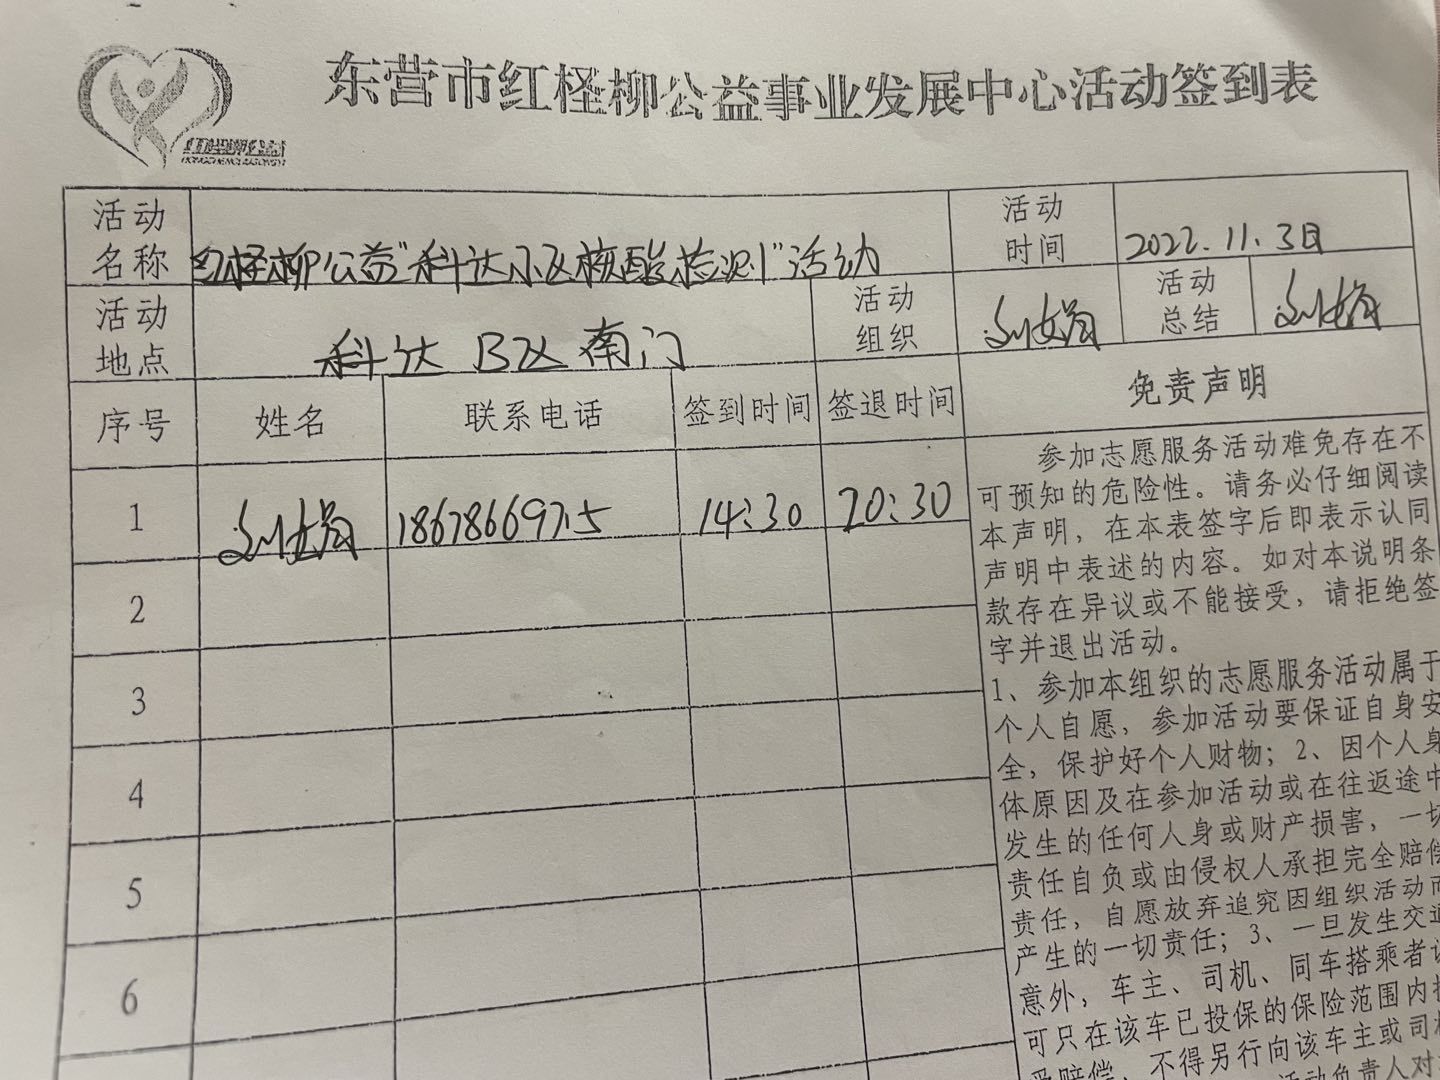 东营市红柽柳公益事业发展中心活动签到表
红柽柳公益
活动名称
红柽柳公益"科达小区核酸检测"活动
活动时间
2022.11.3日
活动地点
科达B区南门
活动组织
刘娟
活动总结
刘娟
序号
姓名
联系电话
签到时间
签退时间
免责声明
1
刘娟
14:30
20:30
2
3
4
5
6
参加志愿服务活动难免存在不
可预知的危险性。请务必仔细阅读
本声明，在本表签字后即表示认同
声明中表述的内容。如对本说明条
款存在异议或不能接受，请拒绝签
字并退出活动。
1、参加本组织的志愿服务活动属于
个人自愿，参加活动要保证自身安
全，保护好个人财物；2、因个人身
体原因及在参加活动或在往返途中
发生的任何人身或财产损害，一切
责任自负或由侵权人承担完全赔偿
责任，自愿放弃追究因组织活动而
产生的一切责任；3、一旦发生交通
意外，车主、司机、同车搭乘者认
可只在该车已投保的保险范围内接
受赔偿，不得另行向该车主或司机
活动负责人对